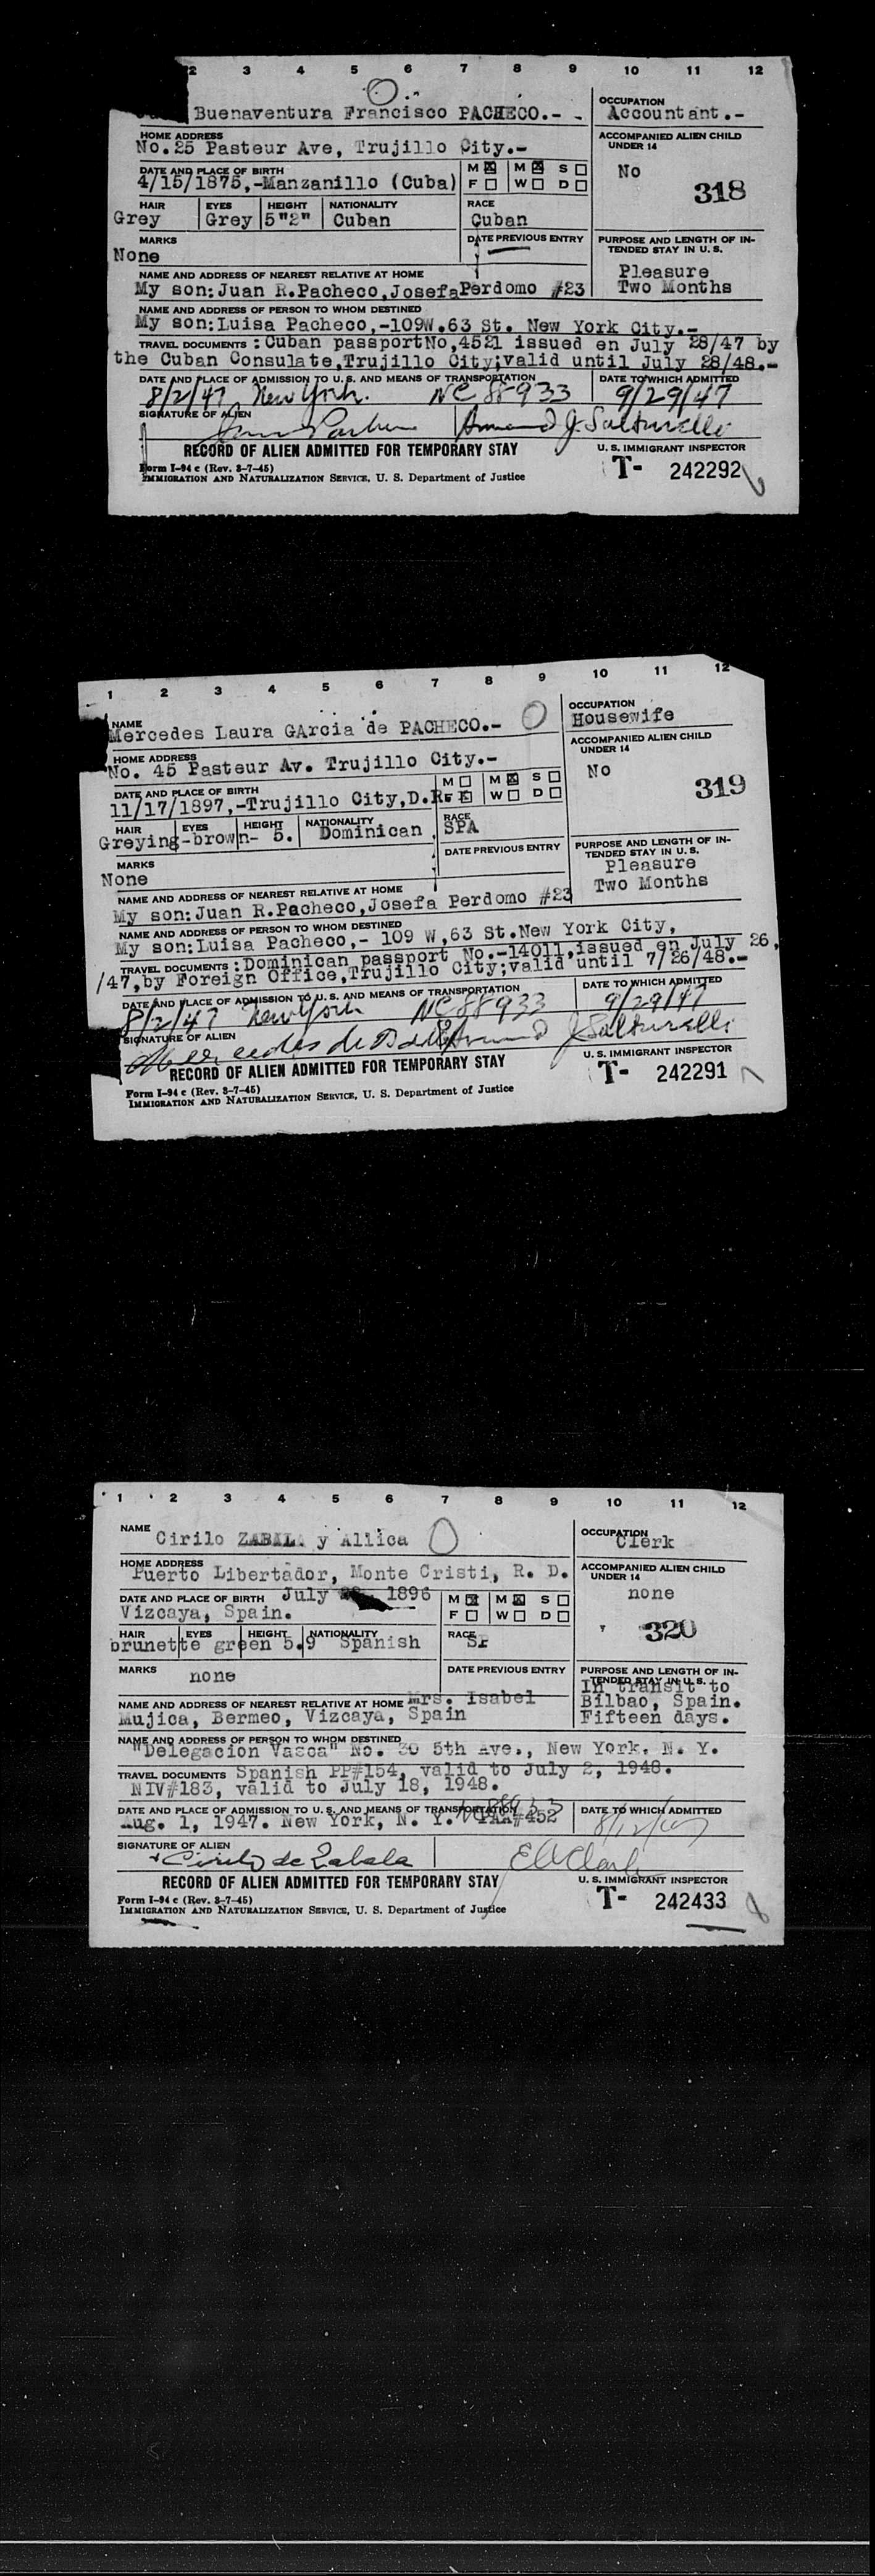 2 3 4 5 6 7 8 9 10 11 12
Buenaventura Francisco PACHECO.- -
OCCUPATION
Accountant.-
HOME ADDRESS
No.25 Pasteur Ave, Trujillo City.-
ACCOMPANIED ALIEN CHILD
UNDER 14
No
318
DATE AND PLACE OF BIRTH
4/15/1875,-Manzanillo (Cuba)
M ☒ M ☒ S ☐
F ☐ W ☐ D ☐
HAIR EYES HEIGHT NATIONALITY RACE
Grey Grey 5"2" Cuban Cuban
MARKS
None
DATE PREVIOUS ENTRY
PURPOSE AND LENGTH OF IN-
TENDED STAY IN U. S.
Pleasure
Two Months
NAME AND ADDRESS OF NEAREST RELATIVE AT HOME
My son:Juan R.Pacheco,Josefa Perdomo #23
NAME AND ADDRESS OF PERSON TO WHOM DESTINED
My son:Luisa Pacheco,-109W.63 St. New York City.-
TRAVEL DOCUMENTS : Cuban passportNo,4521 issued en July 28/47 by
the Cuban Consulate,Trujillo City;valid until July 28/48.-
DATE AND PLACE OF ADMISSION TO U. S. AND MEANS OF TRANSPORTATION
8/2/47 New York. NC 88933
DATE TO WHICH ADMITTED
9/29/47
SIGNATURE OF ALIEN
RECORD OF ALIEN ADMITTED FOR TEMPORARY STAY
U. S. IMMIGRANT INSPECTOR
Form I-94 c (Rev. 3-7-45)
IMMIGRATION AND NATURALIZATION SERVICE, U. S. Department of Justice
T- 242292
1 2 3 4 5 6 7 8 9 10 11 12
NAME
Mercedes Laura GArcia de PACHECO.-
OCCUPATION
Housewife
HOME ADDRESS
No. 45 Pasteur Av. Trujillo City.-
ACCOMPANIED ALIEN CHILD
UNDER 14
No
319
DATE AND PLACE OF BIRTH
11/17/1897,-Trujillo City,D.R.
M ☐ M ☒ S ☐
F ☒ W ☐ D ☐
HAIR EYES HEIGHT NATIONALITY RACE
Greying-brown- 5. Dominican SPA
MARKS
None
DATE PREVIOUS ENTRY
PURPOSE AND LENGTH OF IN-
TENDED STAY IN U. S.
Pleasure
Two Months
NAME AND ADDRESS OF NEAREST RELATIVE AT HOME
My son:Juan R.Pacheco,Josefa Perdomo #23
NAME AND ADDRESS OF PERSON TO WHOM DESTINED
My son:Luisa Pacheco,- 109 W,63 St.New York City,
TRAVEL DOCUMENTS : Dominican passport No.-14011,issued en July 26,
/47,by Foreign Office,Trujillo City;valid until 7/26/48.-
DATE AND PLACE OF ADMISSION TO U. S. AND MEANS OF TRANSPORTATION
8/2/47 New York NC 88933
DATE TO WHICH ADMITTED
9/29/47
SIGNATURE OF ALIEN
RECORD OF ALIEN ADMITTED FOR TEMPORARY STAY
U. S. IMMIGRANT INSPECTOR
Form I-94 c (Rev. 3-7-45)
IMMIGRATION AND NATURALIZATION SERVICE, U. S. Department of Justice
T- 242291
1 2 3 4 5 6 7 8 9 10 11 12
NAME
Cirilo ZABALA y Allica
OCCUPATION
Clerk
HOME ADDRESS
Puerto Libertador, Monte Cristi, R. D.
ACCOMPANIED ALIEN CHILD
UNDER 14
none
320
DATE AND PLACE OF BIRTH July 1896
Vizcaya, Spain.
M ☒ M ☒ S ☐
F ☐ W ☐ D ☐
HAIR EYES HEIGHT NATIONALITY RACE
brunette green 5.9 Spanish
MARKS
none
DATE PREVIOUS ENTRY
PURPOSE AND LENGTH OF IN-
TENDED STAY IN U. S.
In transit to
Bilbao, Spain.
Fifteen days.
NAME AND ADDRESS OF NEAREST RELATIVE AT HOME Mrs. Isabel
Mujica, Bermeo, Vizcaya, Spain
NAME AND ADDRESS OF PERSON TO WHOM DESTINED
"Delegacion Vasca" No. 30 5th Ave., New York, N. Y.
TRAVEL DOCUMENTS Spanish PP#154, valid to July 2, 1948.
NIV#183, valid to July 18, 1948.
DATE AND PLACE OF ADMISSION TO U. S. AND MEANS OF TRANSPORTATION
Aug. 1, 1947. New York, N. Y. PAA#452
DATE TO WHICH ADMITTED
SIGNATURE OF ALIEN
Cirilo de Zabala
E A Clark
RECORD OF ALIEN ADMITTED FOR TEMPORARY STAY
U. S. IMMIGRANT INSPECTOR
Form I-94 c (Rev. 3-7-45)
IMMIGRATION AND NATURALIZATION SERVICE, U. S. Department of Justice
T- 242433